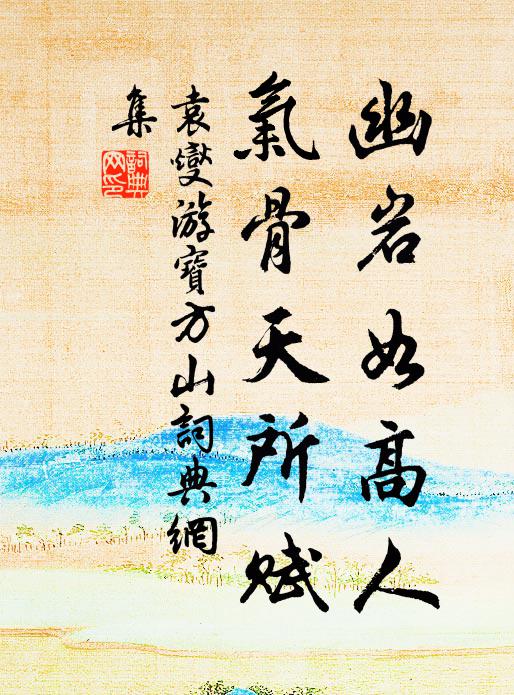 幽岩如高人
氣骨天所賦
袁燮游寶方山詞典網
集
詞典
网印